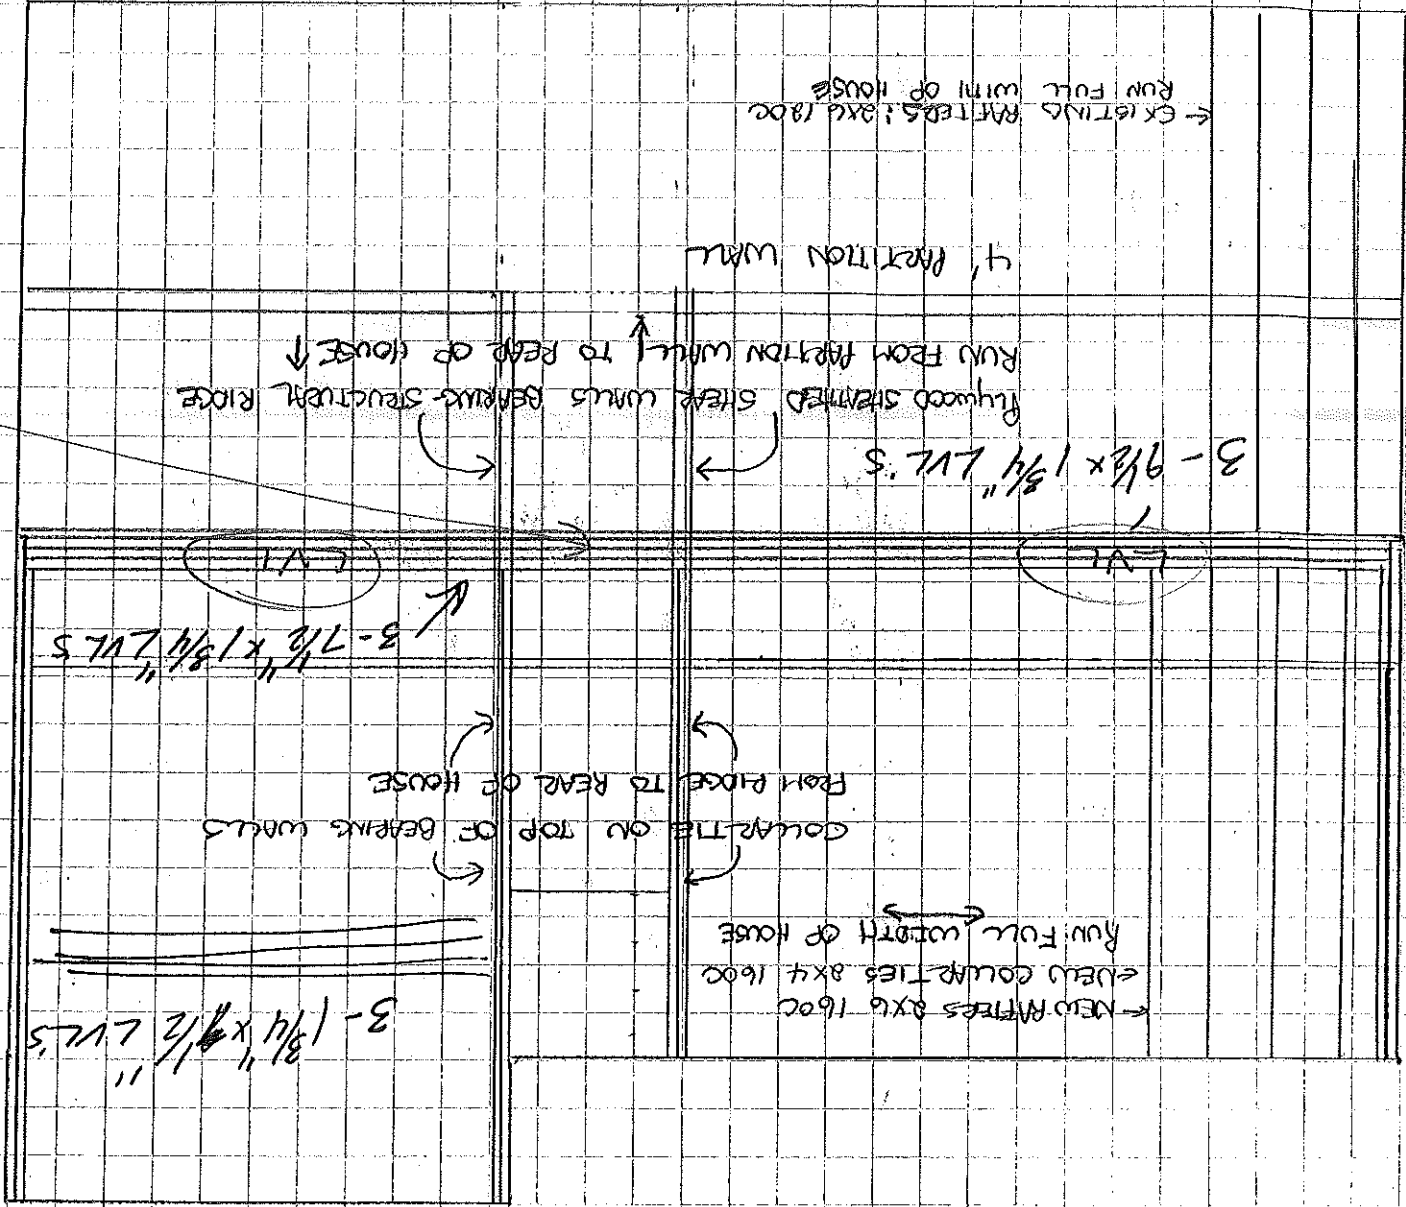 3 - 1 3/4" x LVL'S
← NEW RAFTERS 2X6 16OC
← NEW COLLARTIES 2X4 16OC
RUN FULL WIDTH OF HOUSE
COLLARTIE ON TOP OF BEARING WALLS
FROM RIDGE TO REAR OF HOUSE
3 - 7 1/2" x 1 3/4" LVLS
LVL
LVL
3 - 9 1/2 x 1 3/4" LVL'S
PLYWOOD SHEATHED SHEAR WALLS BEARING STRUCTURAL RIDGE
RUN FROM PARTION WALL TO REAR OF HOUSE
4' PARTITION WALL
← EXISTING RAFTERS: 2X6 12OC
RUN FULL WITH OF HOUSE